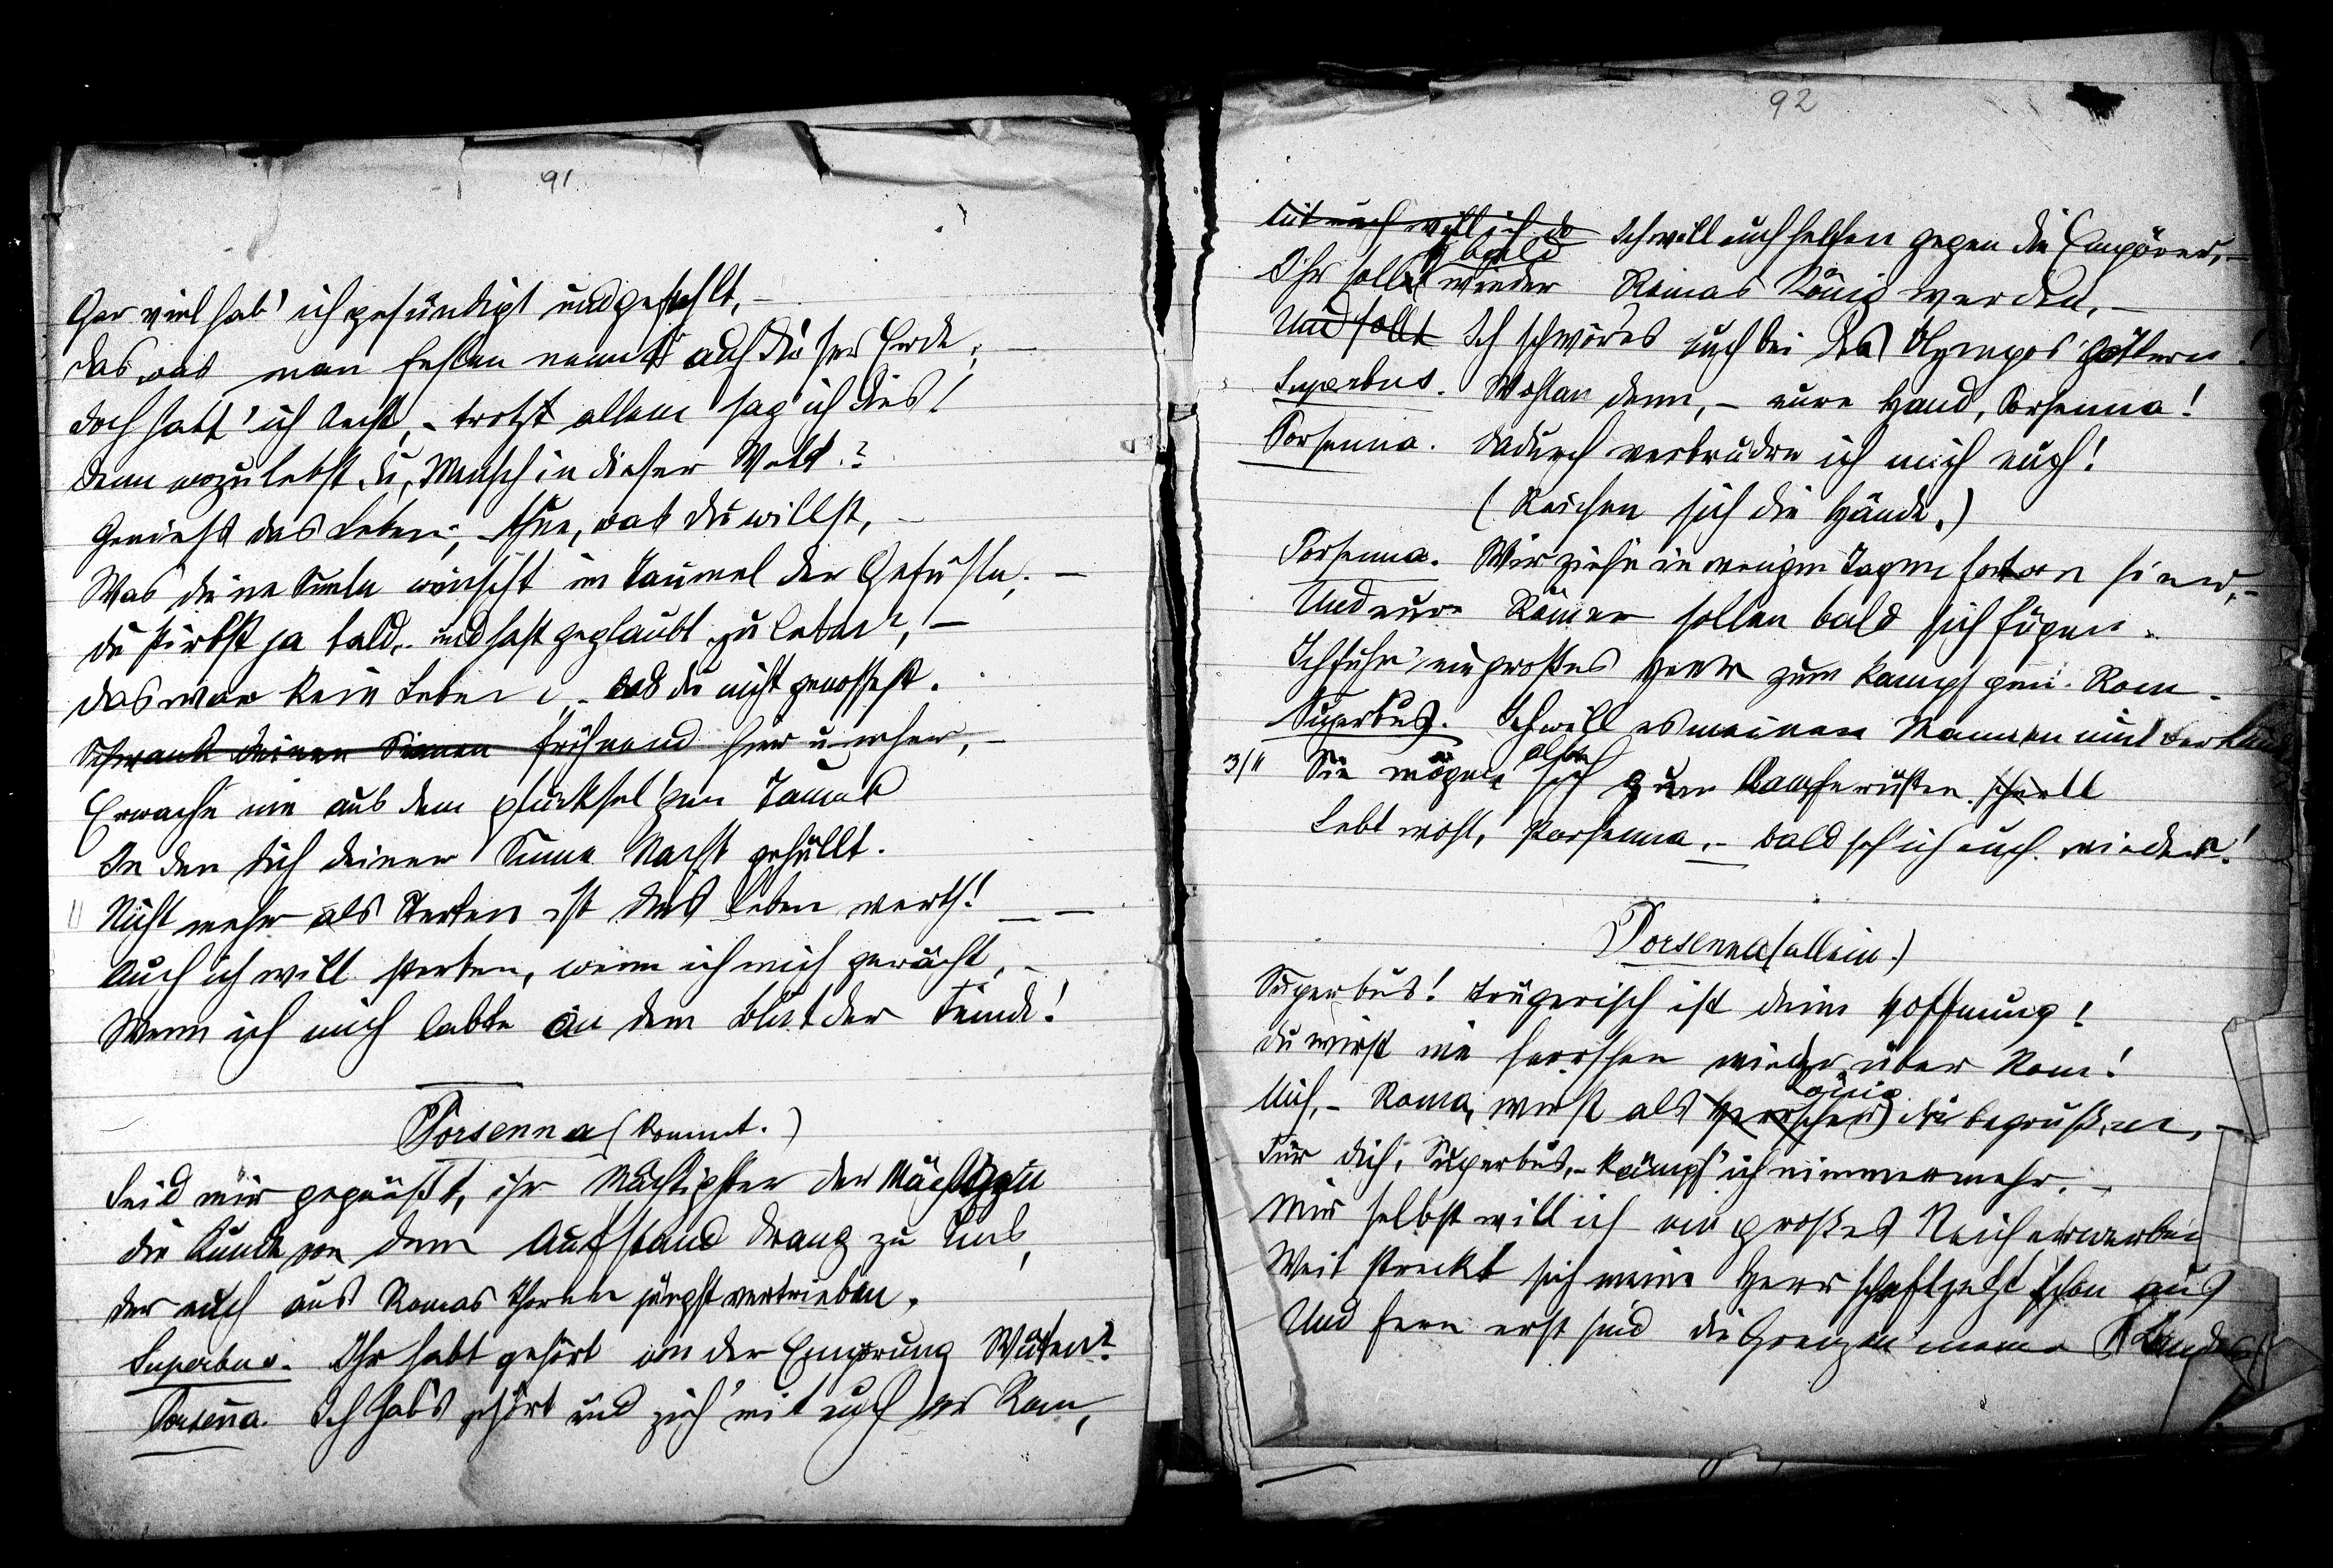 91
Gar viel hab' ich gesündigt und gefehlt, –
das was man Fehlen nennt auf dieser Erde; –
doch hatt' ich Recht, – trotzt allem sag' ich dies!
denn wozu lebst du, Mensch in dieser Welt?
Genieße das Leben, – thue, was du willst, –
Was deine Seele wünscht im Taumel der Gefühle; –
du stirbst ja bald, – und hast geglaubt zu leben?, –
das war kein Leben, – das du nicht genossest.
Schwank deinen Sinnen fröhnend hin u. her, –
Erwache nie aus dem glücksel'gen Taumel
In den dich deiner Sinne Nacht gehüllt.
Nicht mehr als Sterben ist das Leben werth! – –
Auch ich will sterben, wenn ich mich gerächt, –
Wenn ich mich labte an dem Blut der Feinde!
Porsenna (kommt.)
Seid mir gegrüßt, ihr Mächtigster der Mächtigen
die Kunde von dem Aufstand drang zu uns,
der euch aus Romas Thoren jüngst vertrieben.
Superbus. Ihr habt gehört von der Empörung Wüten?
Porsenna. Ich hab's gehört und zieh' mit euch vor Rom,
92
Mit euch will ich Ich will euch helfen gegen die Empörer, –
bald
Ihr sollt wieder Romas König werden, –
Und sollt Ich schwör es euch bei des Olympos Göttern!
Superbus. Wohlan denn, – eure Hand, Porsenna!
Porsenna. Dadurch verbrüdre ich mich euch!
(Reichen sich die Hände.)
Porsenna. Wir ziehn in wenigen Tagen hin, –
Und eure Römer sollen bald sich fügen.
Ich führ' ein großes Heer zum Kampf gen Rom.
Superbus. Ich will es meinen Mannen
3/11
Sie mögen sich zum Kampfe rüsten. schnell
Lebt wohl, Porsenna, – bald seh' ich euch wieder!
Porsenna (allein.)
Superbus! trügerisch ist deine Hoffnung!
du wirst nie herrschen wieder über Rom!
König
Mich, – Roma, wirst als Herrscher du begrüßen, –
Für dich, Superbus, – kämpf' ich nimmermehr. –
Mir selbst will ich ein großes Reich erwerben
Weit streckt sich meine Herrschaft jetzt schon aus
Und fern erst sind die Grenzen meines Landes